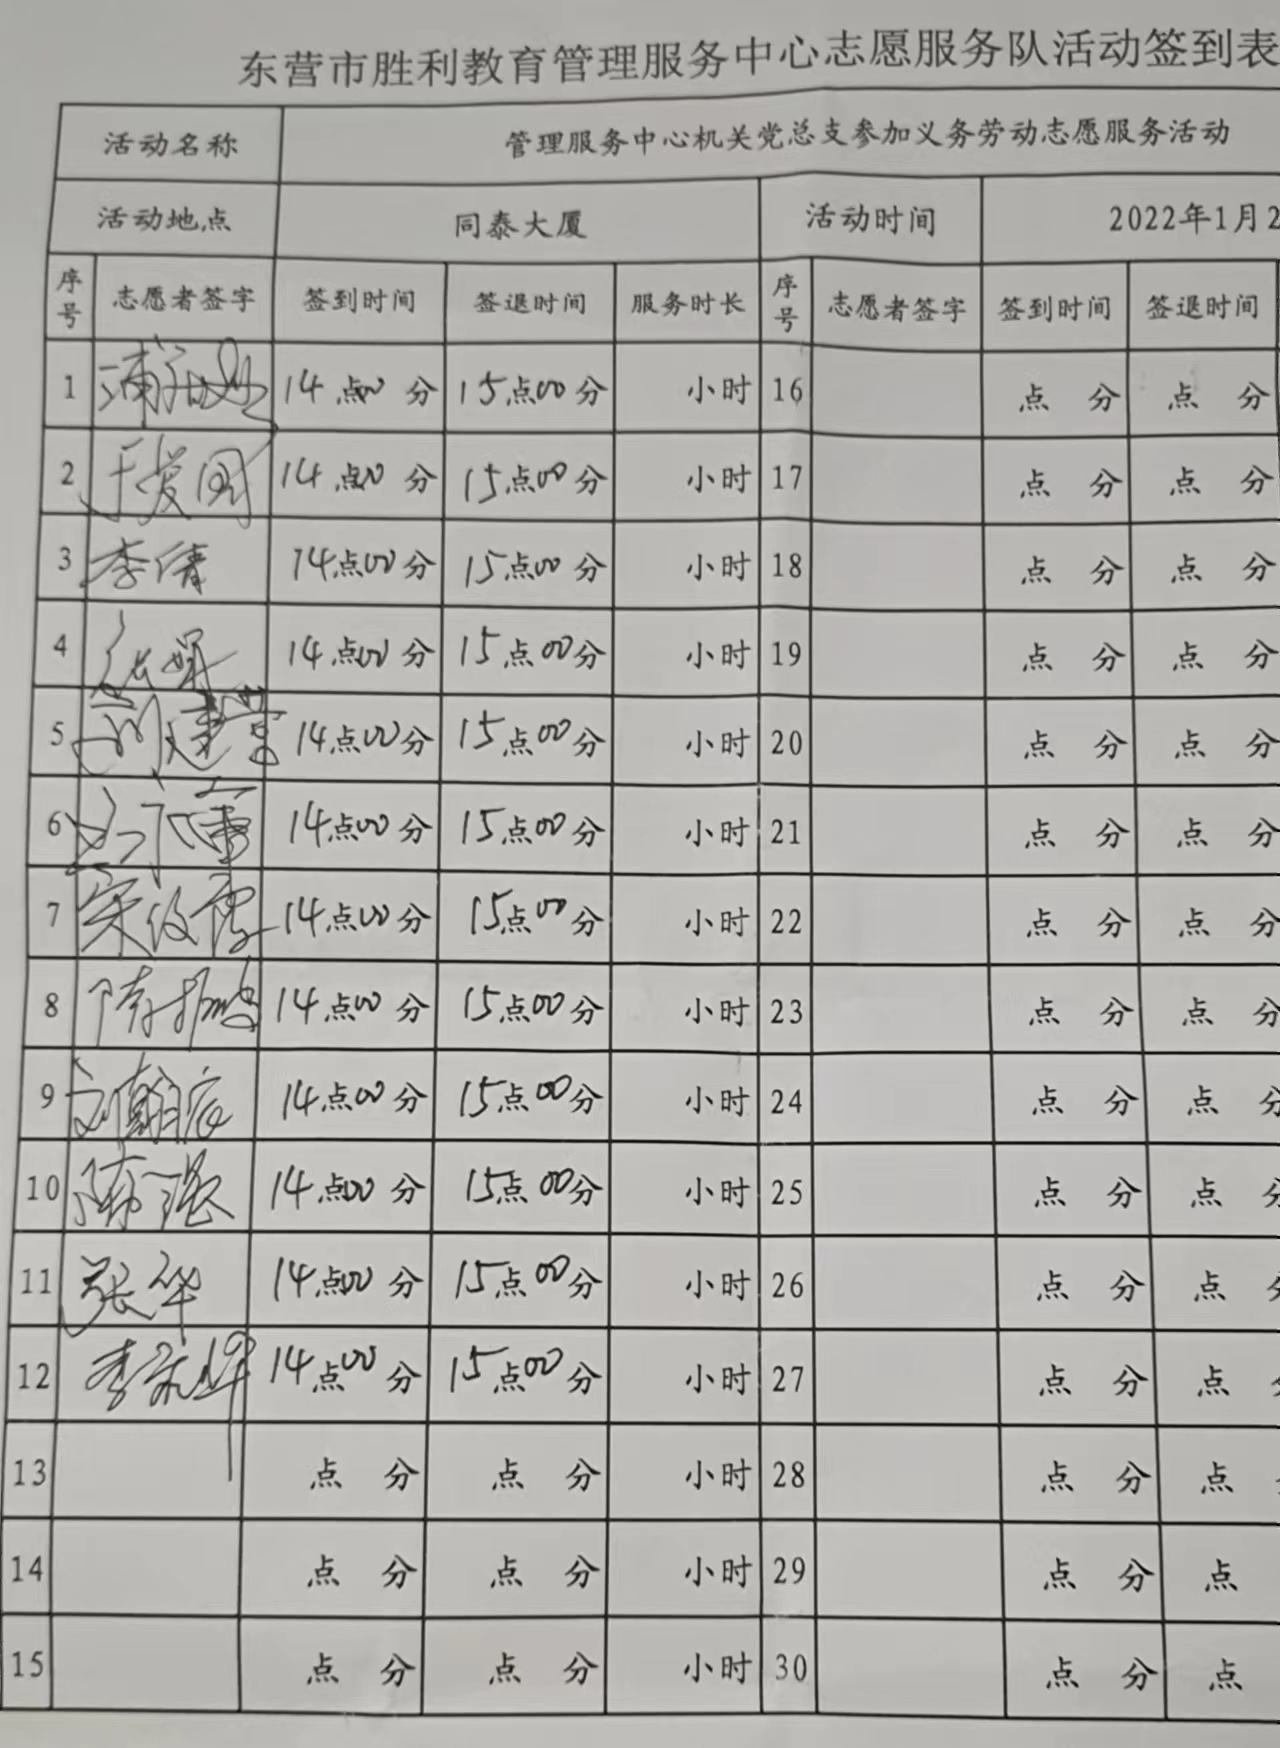 东营市胜利教育管理服务中心志愿服务队活动签到表
活动名称 管理服务中心机关党总支参加义务劳动志愿服务活动
活动地点 同泰大厦 活动时间 2022年1月2
序号 志愿者签字 签到时间 签退时间 服务时长 序号 志愿者签字 签到时间 签退时间
1 14点00分 15点00分 小时 16 点 分 点 分
2 于爱国 14点00分 15点00分 小时 17 点 分 点 分
3 李倩 14点00分 15点00分 小时 18 点 分 点 分
4 14点00分 15点00分 小时 19 点 分 点 分
5 刘建营 14点00分 15点00分 小时 20 点 分 点 分
6 14点00分 15点00分 小时 21 点 分 点 分
7 14点00分 15点00分 小时 22 点 分 点 分
8 14点00分 15点00分 小时 23 点 分 点 分
9 14点00分 15点00分 小时 24 点 分 点 分
10 陈强 14点00分 15点00分 小时 25 点 分 点 分
11 张华 14点00分 15点00分 小时 26 点 分 点
12 14点00分 15点00分 小时 27 点 分 点
13 点 分 点 分 小时 28 点 分 点
14 点 分 点 分 小时 29 点 分 点
15 点 分 点 分 小时 30 点 分 点